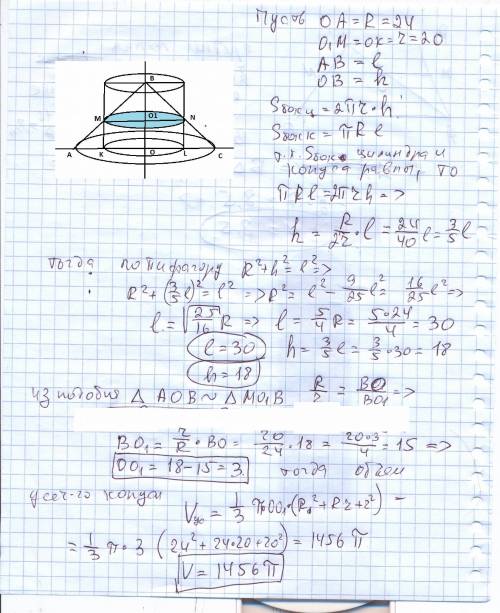 Пусть OA = R = 24
O₁M = OK = r = 20
AB = l
OB = h
Sбок ц = 2πr·h
Sбок к = πRl
т.к. Sбок цилиндра и
конуса равны, то
πRl = 2πrh =>
h = R/2r · l = 24/40 l = 3/5 l
B
M O1 N
A K O L C
тогда по пифагору R² + h² = l² =>
R² + (3/5 l)² = l² => R² = l² - 9/25 l² = 16/25 l² =>
l = √25/16 R => l = 5/4 R = 5·24/4 = 30
l = 30 h = 3/5 l = 3/5 · 30 = 18
h = 18
из подобия Δ AOB ~ Δ MO₁B R/r = BO/BO₁ =>
BO₁ = r/R · BO = 20/24 · 18 = 20·3/4 = 15 =>
OO₁ = 18 - 15 = 3 тогда объем
усеч-го конуса Vук = 1/3 π·OO₁·(R² + Rr + r²) =
= 1/3 π·3 (24² + 24·20 + 20²) = 1456 π
V = 1456 π